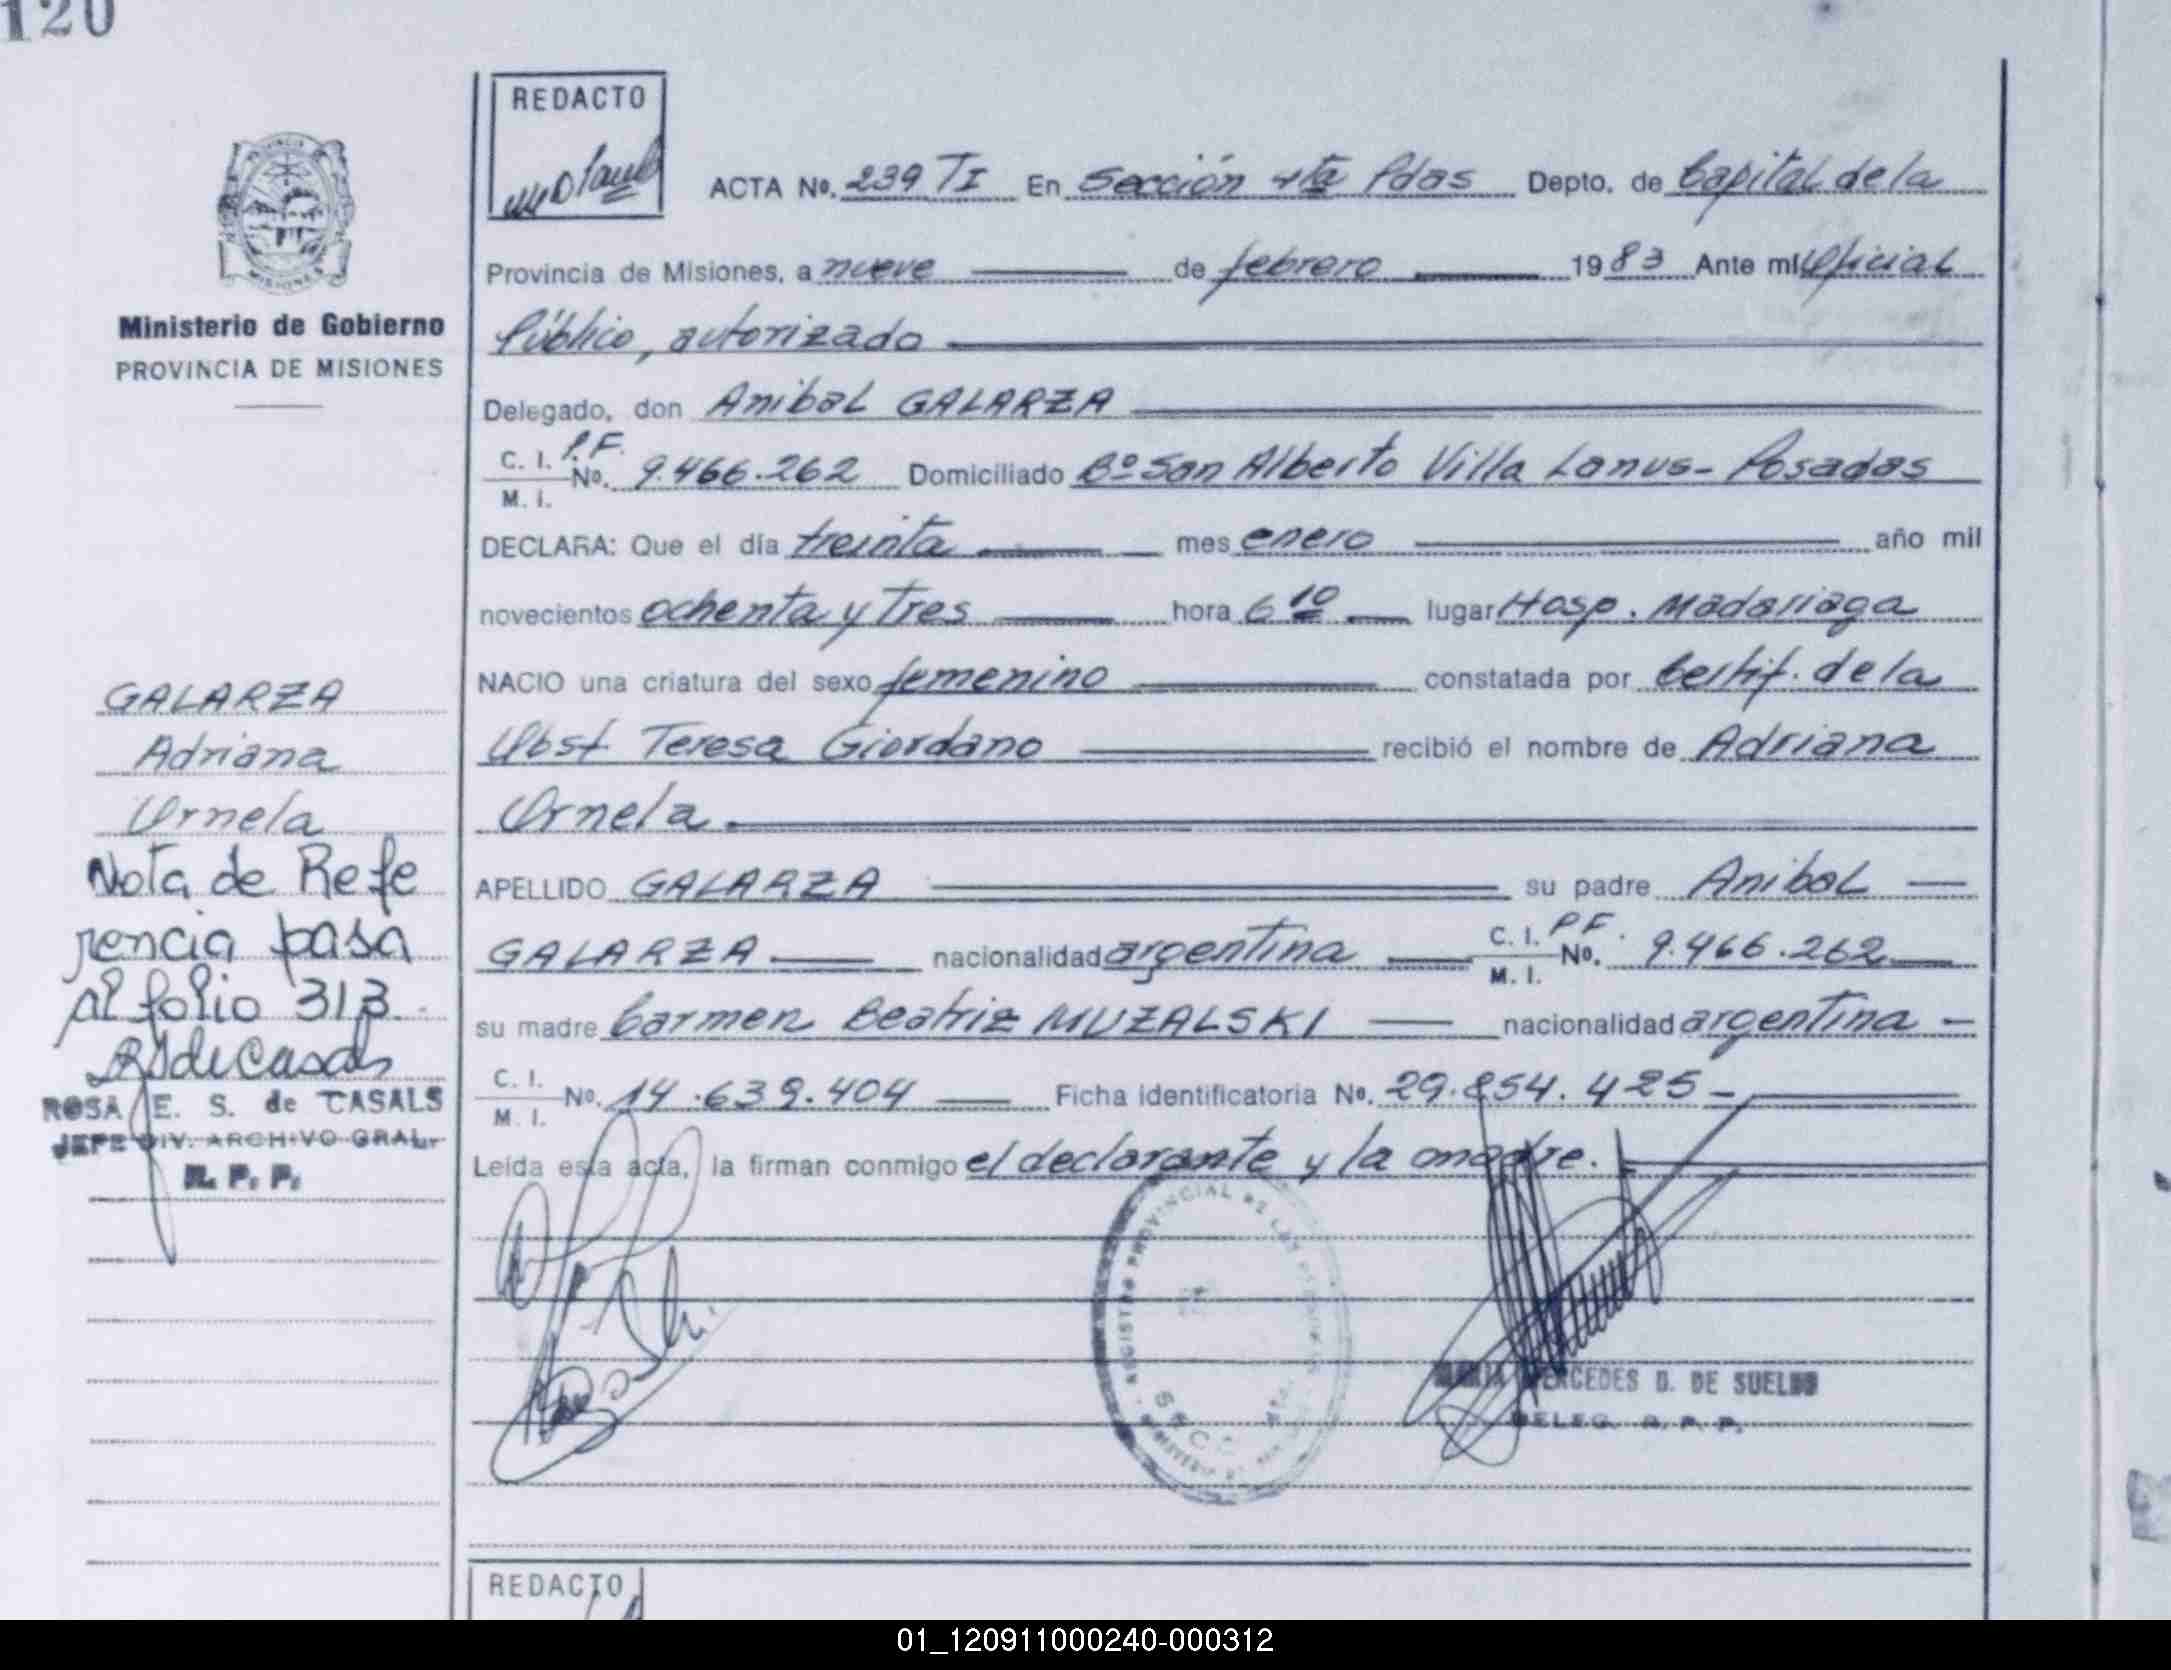 120
REDACTO
ACTA No. 239 TI En Sección 4ta Pdas Depto. de Capital de la
Provincia de Misiones, a nueve de febrero 1983 Ante mí Oficial
Público, autorizado
Delegado, don Anibal GALARZA
C. I. P.F.
No. 9.466.262 Domiciliado Bº San Alberto Villa Lanus- Posadas
M. I.
DECLARA: Que el día treinta mes enero año mil
novecientos ochenta y tres hora 6 10 lugar Hosp. Madariaga
NACIO una criatura del sexo femenino constatada por Certif. de la
Obst Teresa Giordano recibió el nombre de Adriana
Ornela
APELLIDO GALARZA su padre Anibal
GALARZA nacionalidad argentina C. I. P F. No. 9.466.262
M. I.
su madre Carmen Beatriz MUZALSKI nacionalidad argentina
C. I.
No. 14.639.404 Ficha identificatoria No. 29.854.425
M. I.
Leída esta acta, la firman conmigo el declarante y la madre.
MARIA MERCEDES D. DE SUELDO
DELEG. R. P. P.
REGISTRO PROVINCIAL DE LAS PERSONAS
SECC 4ta.
Ministerio de Gobierno
PROVINCIA DE MISIONES
GALARZA
Adriana
Ornela
Nota de Refe
rencia pasa
al folio 313.
RSdeCasals
ROSA E. S. de CASALS
JEFE DIV. ARCHIVO GRAL.
R. P. P.
REDACTO
01_120911000240-000312